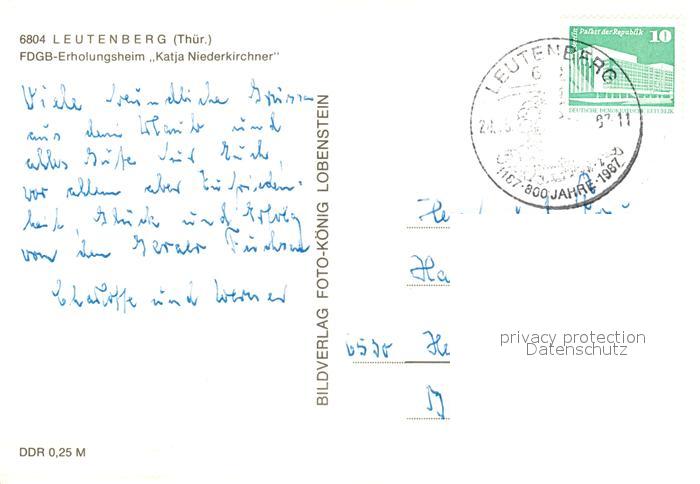 6804 LEUTENBERG (Thür.)
FDGB-Erholungsheim „Katja Niederkirchner"
Viele freundliche Grüsse
aus dem Urlaub und
alles Gute für Euch,
vor allem aber Zufrieden-
heit, Glück und Erfolg
von den Geraer
Charlotte und Werner
DDR 0,25 M
BILDVERLAG FOTO-KÖNIG LOBENSTEIN
Palast der Republik
10
DEUTSCHE DEMOKRATISCHE REPUBLIK
LEUTENBERG
1187·800 JAHRE·1987
He
Ha
6530 He
privacy protection
Datenschutz